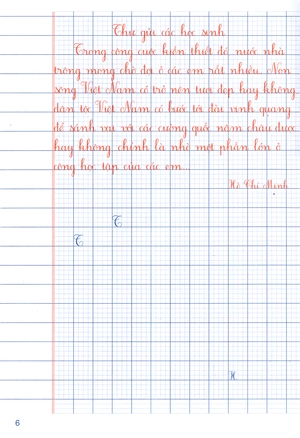 Thư gửi các học sinh
Trong công cuộc kiến thiết đó, nước nhà
trông mong chờ đợi ở các em rất nhiều. Non
sông Việt Nam có trở nên tươi đẹp hay không,
dân tộc Việt Nam có bước tới đài vinh quang
để sánh vai với các cường quốc năm châu được
hay không, chính là nhờ một phần lớn ở
công học tập của các em...
Hồ Chí Minh
T
T
H
6